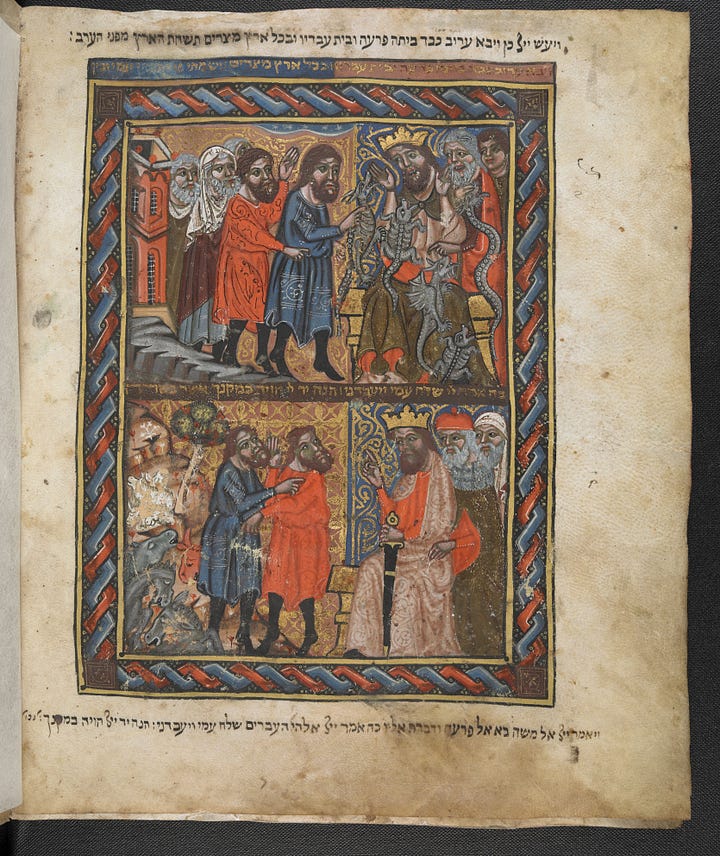 ויעש יי כן ויבא ערוב כבד ביתה פרעה ובית עבדיו ובכל ארץ מצרים תשחת הארץ מפני הערב :
ערוב כבד ובכל ארץ מצרים
כה אמר יי שלח עמי ויעבדני הנה יד יי הויה במקנך אשר
ויאמר יי אל משה בא אל פרעה ודברת אליו כה אמר יי אלהי העברים שלח עמי ויעבדני : הנה יד יי הויה במקנך :